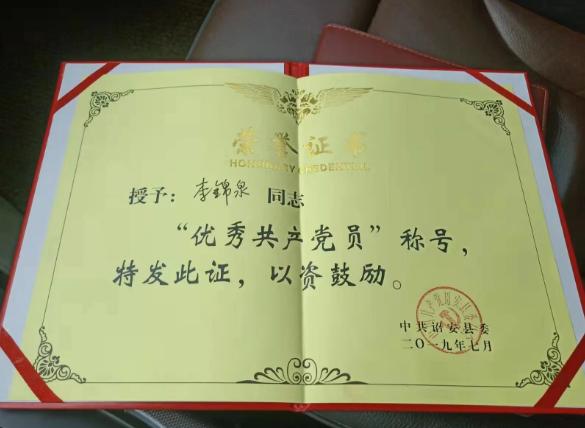 荣誉证书
HONORARY CREDENTIAL
授予：李錦泉 同志
“优秀共产党员”称号，
特发此证，以资鼓励。
中共诏安县委
二〇一九年七月